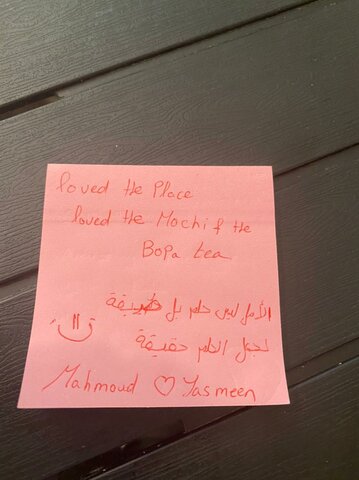 loved the Place
loved the Mochi & the
Bopa tea
الأمل ليس حلم بل طريقة
لجعل الحلم حقيقة
Mahmoud ♡ Yasmeen